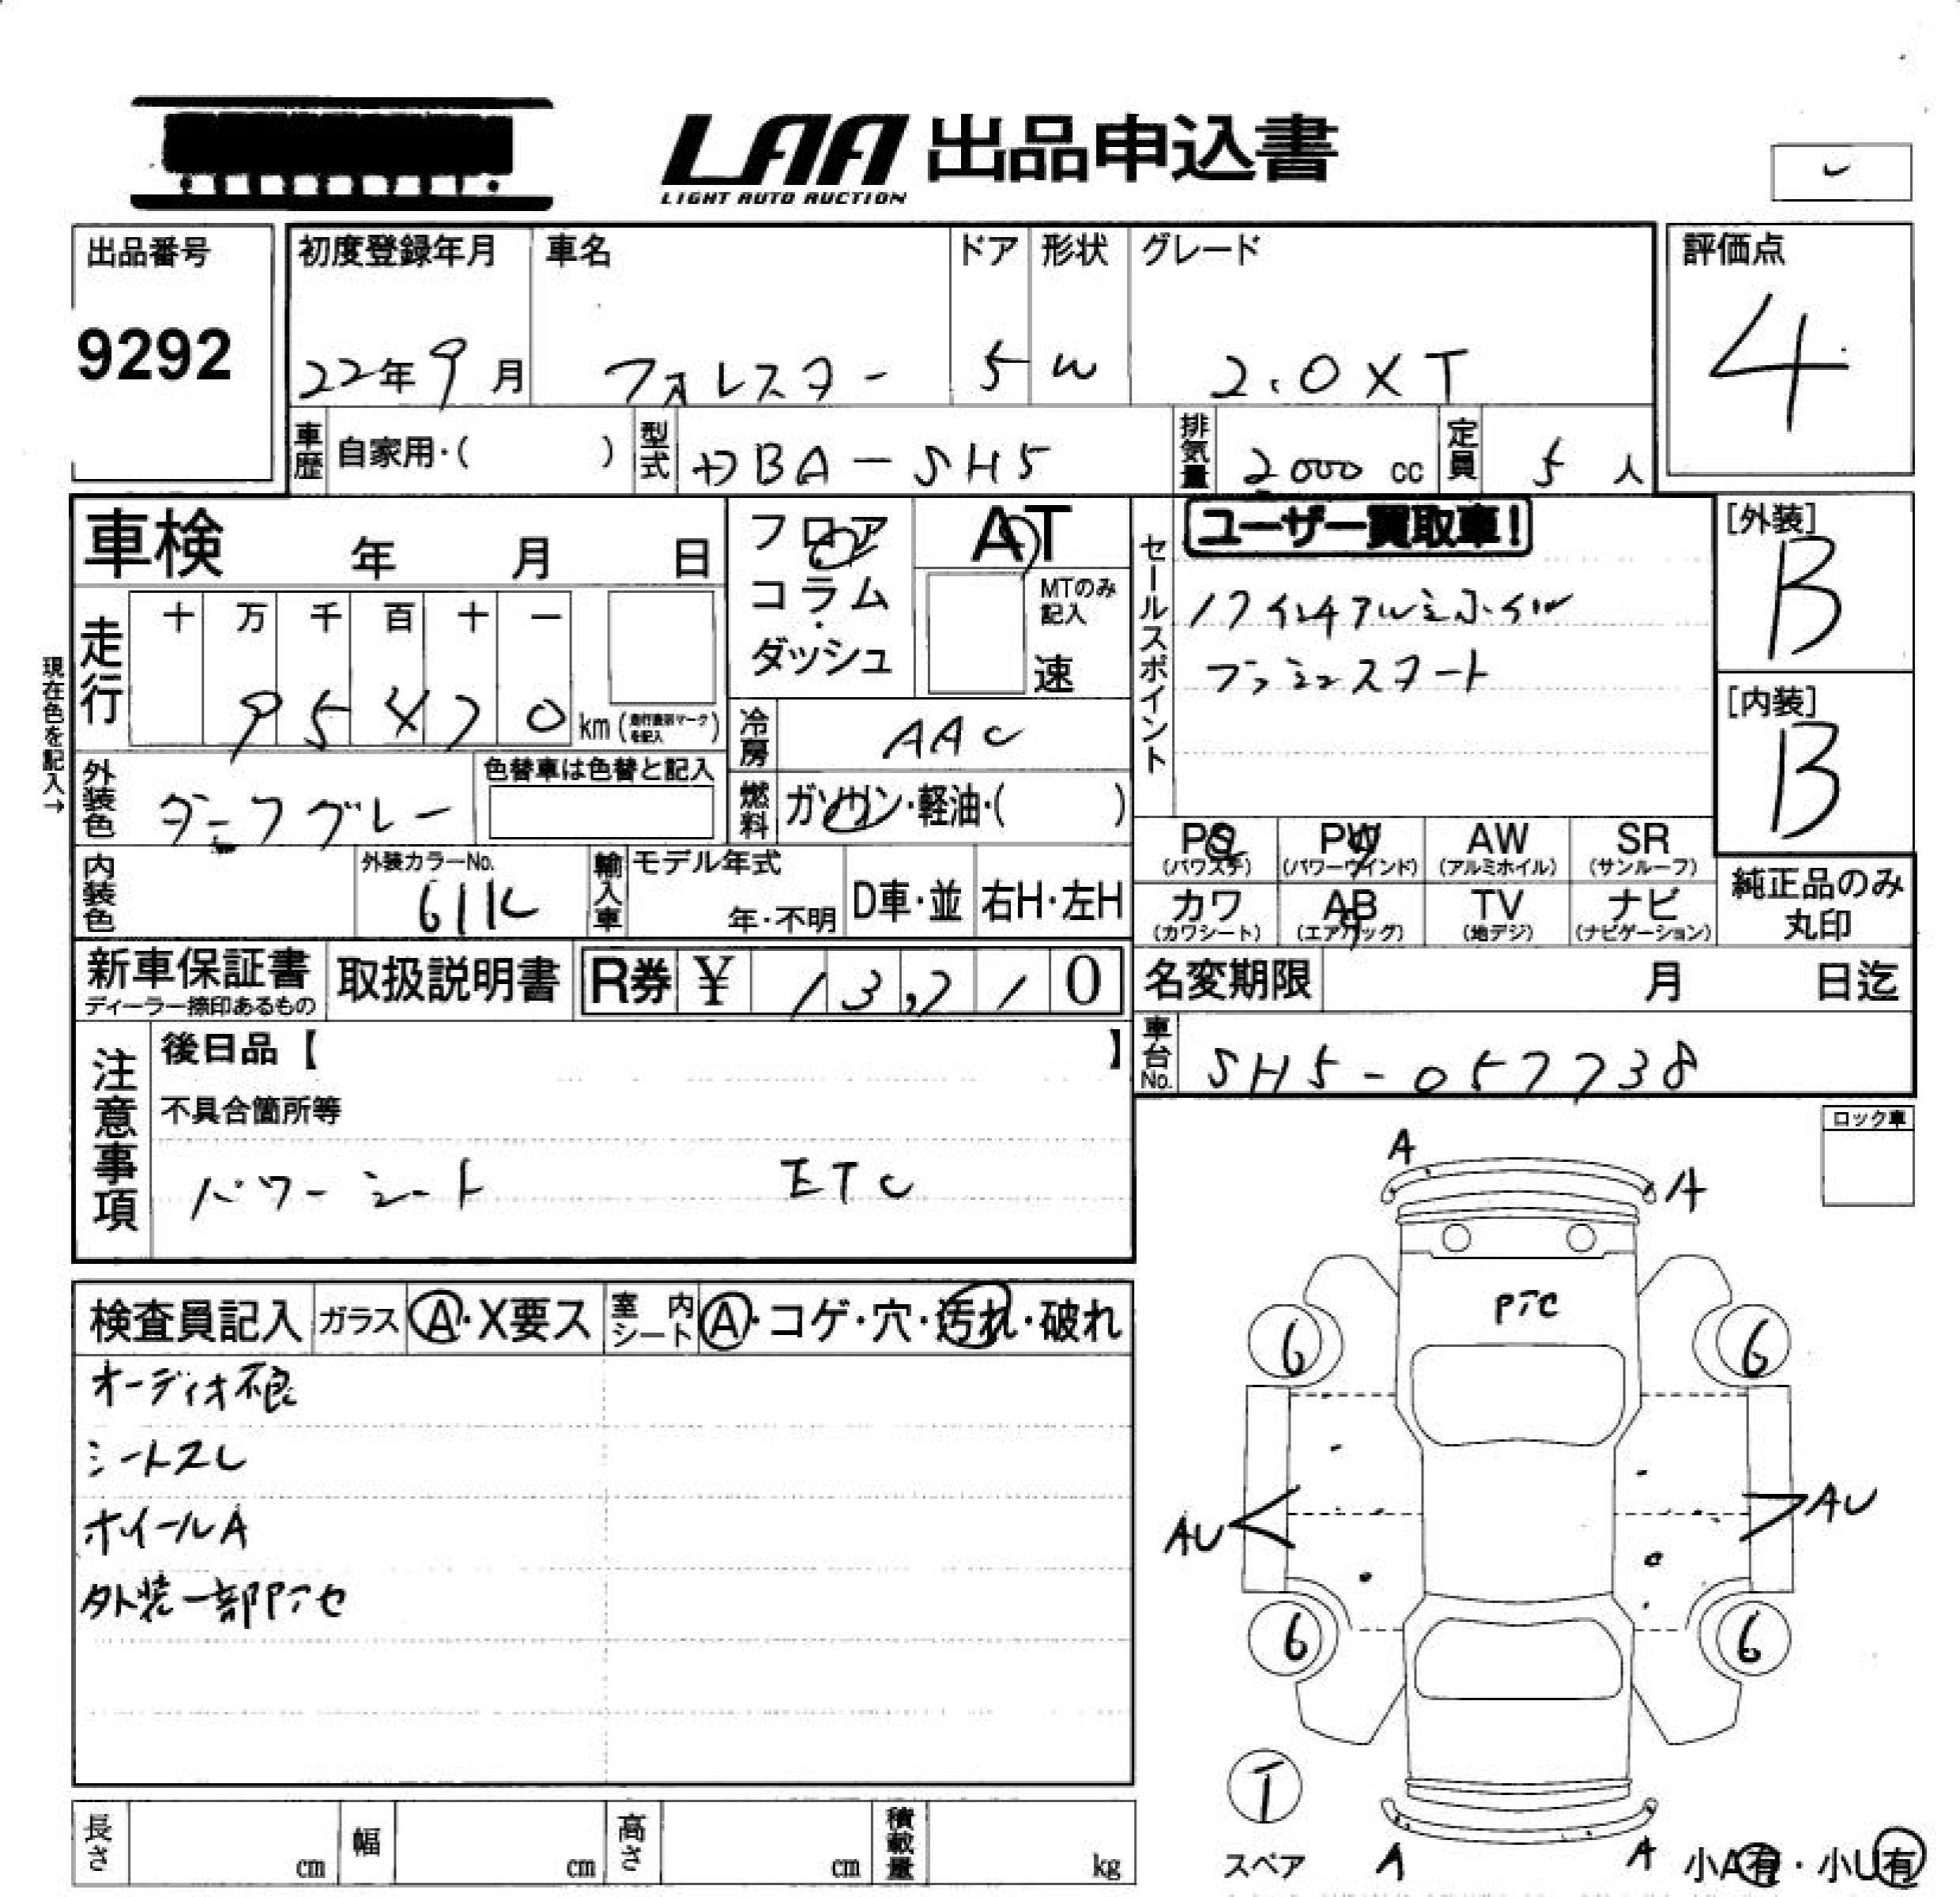 LAA 出品申込書
LIGHT AUTO AUCTION
出品番号
9292
初度登録年月
22年9月
車名
フォレスター
ドア
5
形状
W
グレード
2.0XT
評価点
4
車歴
自家用・( )
型式
DBA-SH5
排気量
2000 cc
定員
5 人
車検 年 月 日
フロア
コラム
・
ダッシュ
AT
MTのみ
記入
速
セールスポイント
ユーザー買取車!
17インチアルミホイル
プッシュスタート
[外装]
B
[内装]
B
現在色を記入→
走行
十 万 千 百 十 一
95470 km
冷房
AAC
外装色
ダークグレー
色替車は色替と記入
燃料
ガソリン・軽油・( )
PS
(パワステ)
PW
(パワーウインド)
AW
(アルミホイル)
SR
(サンルーフ)
カワ
(カワシート)
AB
(エアバッグ)
TV
(地デジ)
ナビ
(ナビゲーション)
純正品のみ
丸印
内装色
外装カラーNo.
61K
輸入車
モデル年式
年・不明
D車・並
右H・左H
新車保証書
ディーラー捺印あるもの
取扱説明書
R券 ¥ 13,210
名変期限 月 日迄
車台No.
SH5-057738
注意事項
後日品【 】
不具合箇所等
パワーシート ETC
ロック車
検査員記入
ガラス
A・X要ス
室内
シート
A・コゲ・穴・汚れ・破れ
オーディオ不良
シートスレ
ホイールA
外装一部Pアセ
A
A
PアC
6
6
AU
AU
6
6
T
スペア
A
A
小A有・小U有
長さ cm
幅 cm
高さ cm
積載量 kg